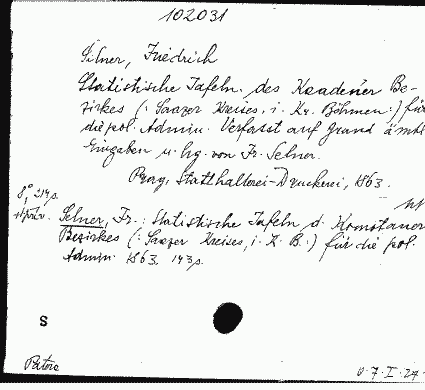 102031
Selner, Friedrich
Statistische Tafeln des Kaadener Be-
zirkes (: Saazer Kreises, i. Kr. Böhmen:) für
die pol. Admin. Verfasst auf Grund ämtl
Eingaben u. hg. von Fr. Selner.
Prag, Statthalterei-Druckerei, 1863.
8°, 214 s.
Selner, Fr.: Statistische Tafeln d. Komotauer
Bezirkes (: Saazer Kreises, i. K. B.:) für die pol.
Admin. 1863, 143 s.
S